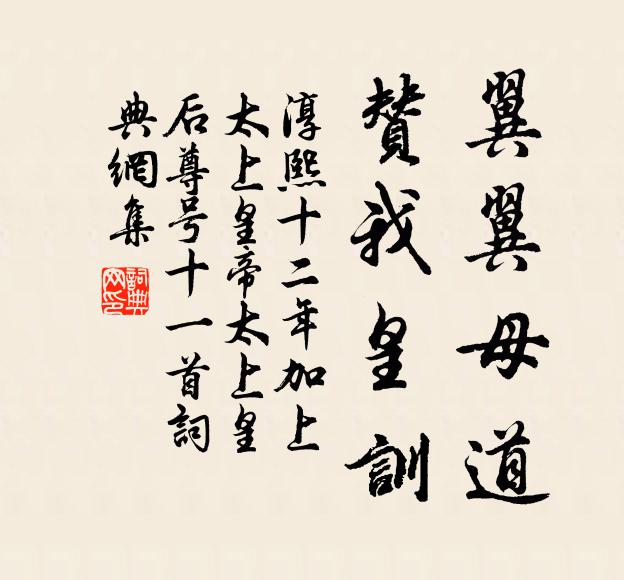 翼翼毋道
贊我皇訓
淳熙十二年加上
太上皇帝太上皇
后尊号十一首詞
典網集
詞典
网印